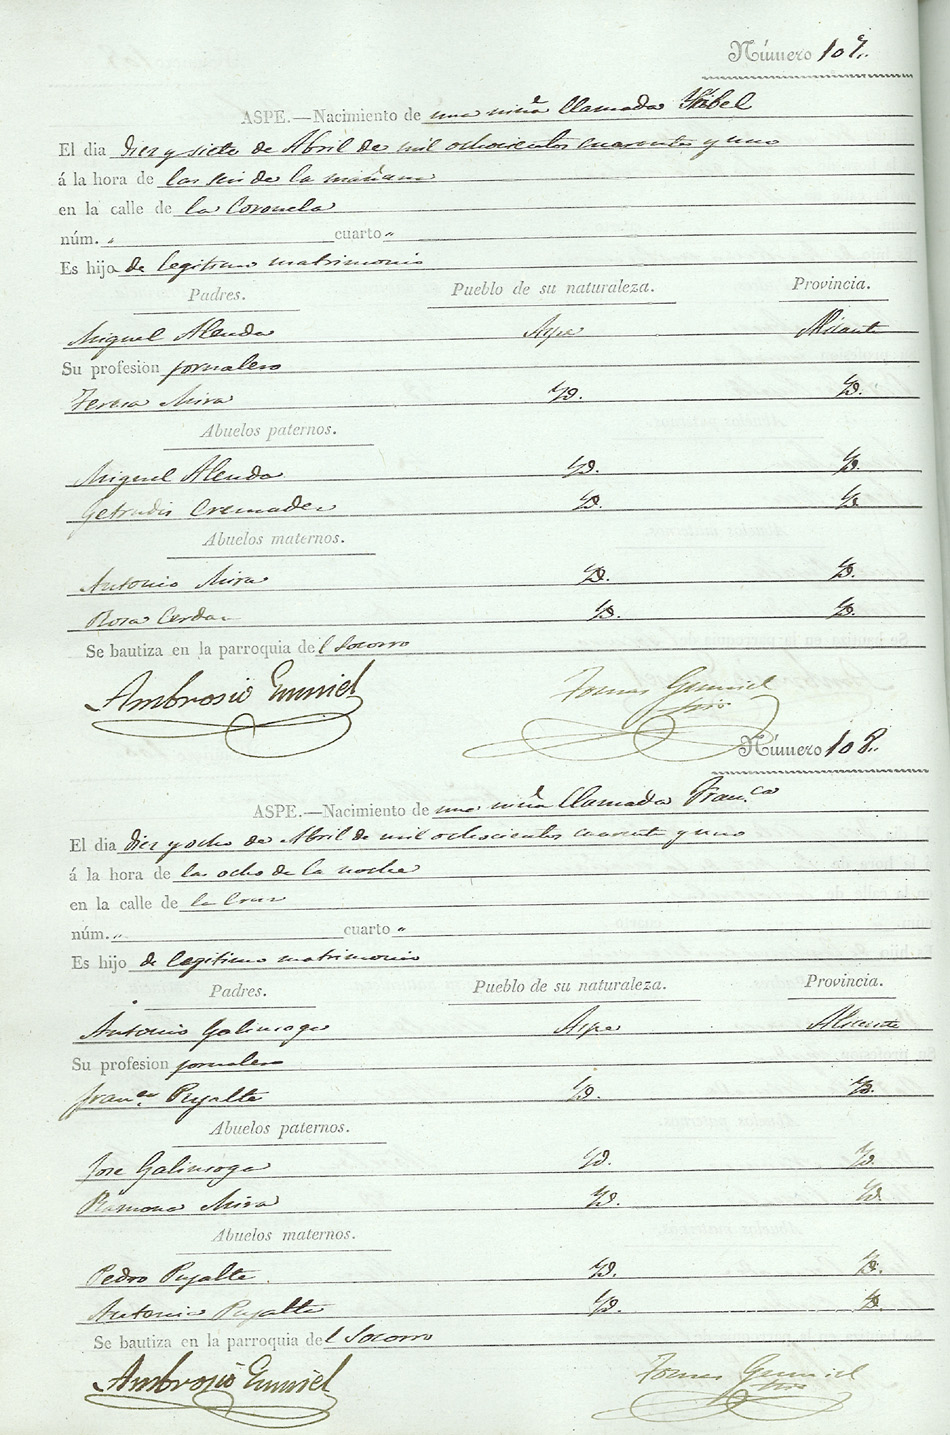 Número 107.
ASPE.—Nacimiento de una niña llamada Ysabel
El dia Diez y siete de Abril de mil ochocientos cuarenta y uno
á la hora de las seis de la mañana
en la calle de la Coronela
núm. " cuarto "
Es hijo de legitimo matrimonio
Padres. Pueblo de su naturaleza. Provincia.
Miguel Alenda Aspe Alicante
Su profesion jornalero
Teresa Mira Yd. Yd.
Abuelos paternos.
Miguel Alenda Yd. Yd.
Getrudis Cremades Yd. Yd.
Abuelos maternos.
Antonio Mira Yd. Yd.
Rosa Cerdan Yd. Yd.
Se bautiza en la parroquia del Socorro
Ambrosio Gumiel Tomas Gumiel
Srio
Número 108.
ASPE.—Nacimiento de una niña llamada Fran.ca
El dia diez y ocho de Abril de mil ochocientos cuarenta y uno
á la hora de las ocho de la noche
en la calle de la Cruz
núm. " cuarto "
Es hijo de legitimo matrimonio
Padres. Pueblo de su naturaleza. Provincia.
Antonio Galinsoga Aspe Alicante
Su profesion jornalero
Fran.ca Pujalte Yd. Yd.
Abuelos paternos.
Jose Galinsoga Yd. Yd.
Ramona Mira Yd. Yd.
Abuelos maternos.
Pedro Pujalte Yd. Yd.
Antonia Pujalte Yd. Yd.
Se bautiza en la parroquia del Socorro
Ambrosio Gumiel Tomas Gumiel
Srio